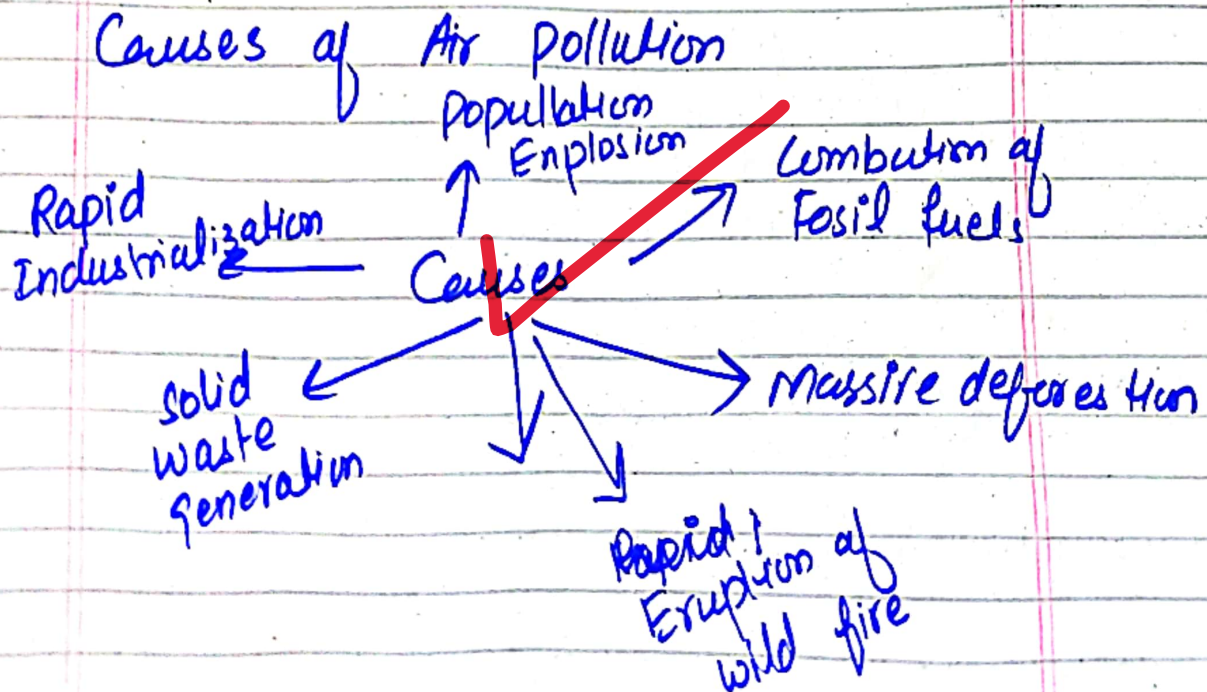 Causes of Air Pollution
Popullation
Explosion
Combution of
Fosil fuels
Rapid
Industrialization
Causes
Solid
waste
generation
Massive deforestion
Rapid
Eruption of
wild fire